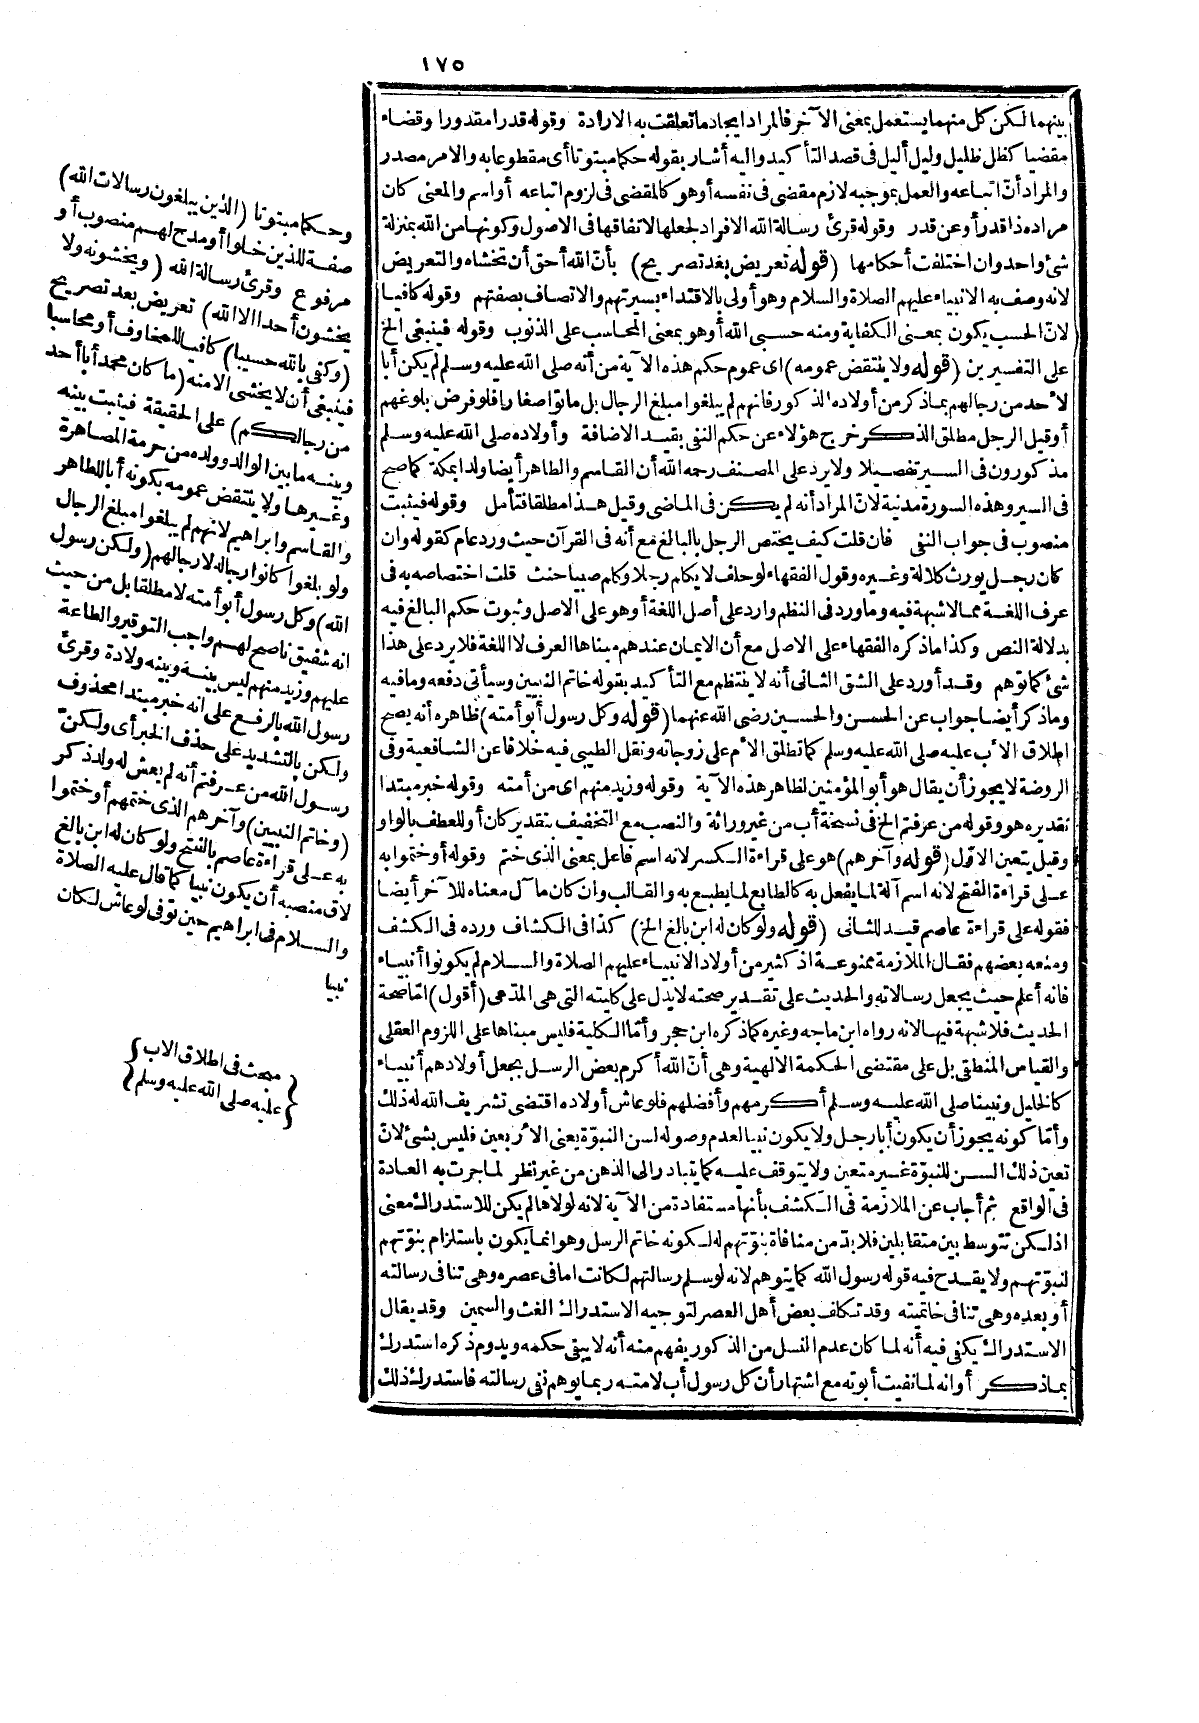 ١٧٥
بينهما لكن كل منهما يستعمل بمعنى الآخر فالمراد ايجاد ما تعلقت به الارادة وقوله قدرا مقدورا وقضاء
مقضيا كظل ظليل وليل أليل فى قصد التأكيد واليه أشار بقوله حكما مبتوتا أى مقطوعا به والامر مصدر
والمراد أنّ اتباعه والعمل بموجبه لازم مقضى فى نفسه أو هو كالمقضى فى لزوم اتباعه أو اسم والمعنى كان
مراده ذا قدر أو عن قدر وقوله قرئ رسالة الله الافراد لجعلها لاتفاقها فى الاصول وكونها من الله بمنزلة
شئ واحد وان اختلفت أحكامها (قوله تعريض بعد تصريح) بأنّ الله أحق أن تخشاه والتعريض
لانه وصف به الانبياء عليهم الصلاة والسلام وهو أولى بالاقتداء بسيرتهم والاتصاف بصفتهم وقوله كافيا
لانّ الحسب يكون بمعنى الكفاية ومنه حسبى الله أو هو بمعنى المحاسب على الذنوب وقوله فينبغى الخ
على التفسيرين (قوله ولا ينتقض عمومه) اى عموم حكم هذه الآية من أنه صلى الله عليه وسلم لم يكن أبا
لأحد من رجالهم بما ذكر من أولاده الذكور فانهم لم يبلغوا مبلغ الرجال بل ماتوا صغارا فلو فرض بلوغهم
أو قيل الرجل مطلق الذكر خرج هؤلاء عن حكم النفى بقيد الاضافة وأولاده صلى الله عليه وسلم
مذكورون فى السير تفصيلا ولا يرد على المصنف رحمه الله أن القاسم والطاهر أيضا ولدا بمكة كما صح
فى السير وهذه السورة مدنية لانّ المراد أنه لم يكن فى الماضى وقيل هذا مطلقا فتأمل وقوله فيثبت
منصوب فى جواب النفى فان قلت كيف يختص الرجل بالبالغ مع أنه فى القرآن حيث ورد عام كقوله وان
كان رجل يورث كلالة وغيره وقول الفقهاء لو حلف لا يكلم رجلا وكلم صبيا حنث قلت اختصاصه به فى
عرف اللغة مما لا شبهة فيه وما ورد فى النظم وارد على أصل اللغة أو هو على الاصل وثبوت حكم البالغ فيه
بدلالة النص وكذا ما ذكره الفقهاء على الاصل مع أن الايمان عندهم مبناها العرف لا اللغة فلا يرد على هذا
شئ كما توهم وقد أورد على الشق الثانى أنه لا ينتظم مع التأكيد بقوله خاتم النبيين وسيأتى دفعه وما فيه
وما ذكر أيضا جواب عن الحسن والحسين رضى الله عنهما (قوله وكل رسول أبو أمته) ظاهره أنه يصح
اطلاق الأب عليه صلى الله عليه وسلم كما تطلق الأم على زوجاته ونقل الطيبى فيه خلافا عن الشافعية وفى
الروضة لا يجوز أن يقال هو أبو المؤمنين لظاهر هذه الآية وقوله وزيد منهم اى من أمته وقوله خبر مبتدا
تقديره هو وقوله من عرفتم الخ فى نسخة أب من غير وراثة والنصب مع التخفيف بتقدير كان أو للعطف بالواو
وقيل يتعين الاوّل (قوله وآخرهم) هو على قراءة الكسر لانه اسم فاعل بمعنى الذى ختم وقوله أو ختموا به
على قراءة الفتح لانه اسم آلة لما يفعل به كالطابع لما يطبع به والقالب وان كان مآل معناه للآخر أيضا
فقوله على قراءة عاصم قيد للثانى (قوله ولو كان له ابن بالغ الخ) كذا فى الكشاف ورده فى الكشف
ومنعه بعضهم فقال الملازمة ممنوعة اذ كثير من أولاد الانبياء عليهم الصلاة والسلام لم يكونوا أنبياء
فانه أعلم حيث يجعل رسالاته والحديث على تقدير صحته لا يدل على كليته التى هى المدّعى (أقول) امّا صحة
الحديث فلا شبهة فيها لانه رواه ابن ماجه وغيره كما ذكره ابن حجر وأمّا الكلية فليس مبناها على اللزوم العقلى
والقياس المنطقى بل على مقتضى الحكمة الالهية وهى أنّ الله أكرم بعض الرسل بجعل أولادهم أنبياء
كالخليل ونبينا صلى الله عليه وسلم أكرمهم وأفضلهم فلو عاش أولاده اقتضى تشريف الله له ذلك
وأمّا كونه يجوز أن يكون أبا رجل ولا يكون نبيا لعدم وصوله لسن النبوّة يعنى الأربعين فليس بشئ لانّ
تعين ذلك السن للنبوّة غير متعين ولا يتوقف عليه كما يتبادر الى الذهن من غير نظر لما جرت به العادة
فى الواقع ثم أجاب عن الملازمة فى الكشف بأنها مستفادة من الآية لانه لولاها لم يكن للاستدراك معنى
اذ لكن تتوسط بين متقابلين فلا بدّ من منافاة بنوّتهم له لكونه خاتم الرسل وهو انما يكون باستلزام بنوّتهم
لنبوّتهم ولا يقدح فيه قوله رسول الله كما يتوهم لانه لو سلم رسالتهم لكانت اما فى عصره وهى تنافى رسالته
أو بعده وهى تنافى خاتميته وقد تكلف بعض أهل العصر لتوجيه الاستدراك الغث والسمين وقد يقال
الاستدراك يكفى فيه أنه لما كان عدم النسل من الذكور يفهم منه أنه لا يبقى حكمه ويدوم ذكره استدرك
بما ذكر أو انه لما نفيت أبوته مع اشتهار أن كل رسول أب لامته ربما يوهم نفى رسالته فاستدرك ذلك
وحكما مبتوتا (الذين يبلغون رسالات الله)
صفة للذين خلوا أو مدح لهم منصوب أو
مرفوع وقرئ رسالة الله (ويخشونه ولا
يخشون أحدا الا الله) تعريض بعد تصريح
(وكفى بالله حسيبا) كافيا للمخاوف أو محاسبا
فينبغى أن لا يخشى الا منه (ما كان محمد أبا أحد
من رجالكم) على الحقيقة فيثبت بينه
وبينه ما بين الوالد وولده من حرمة المصاهرة
وغيرها ولا ينتقض عمومه بكونه أبا للطاهر
والقاسم وابراهيم لانهم لم يبلغوا مبلغ الرجال
ولو بلغوا كانوا رجاله لا رجالهم (ولكن رسول
الله) وكل رسول أبو أمته لا مطلقا بل من حيث
انه شفيق ناصح لهم واجب التوقير والطاعة
عليهم وزيد منهم ليس بينه وبينه ولادة وقرئ
رسول الله بالرفع على انه خبر مبتدا محذوف
ولكن بالتشديد على حذف الخبر أى ولكنّ
رسول الله من عرفتم أنه لم يعش له ولد ذكر
(وخاتم النبيين) وآخرهم الذى ختمهم أو ختموا
به على قراءة عاصم بالفتح ولو كان له ابن بالغ
لاق منصبه أن يكون نبيا كما قال عليه الصلاة
والسلام فى ابراهيم حين توفى لو عاش لكان
نبيا
مبحث فى اطلاق الاب
عليه صلى الله عليه وسلم